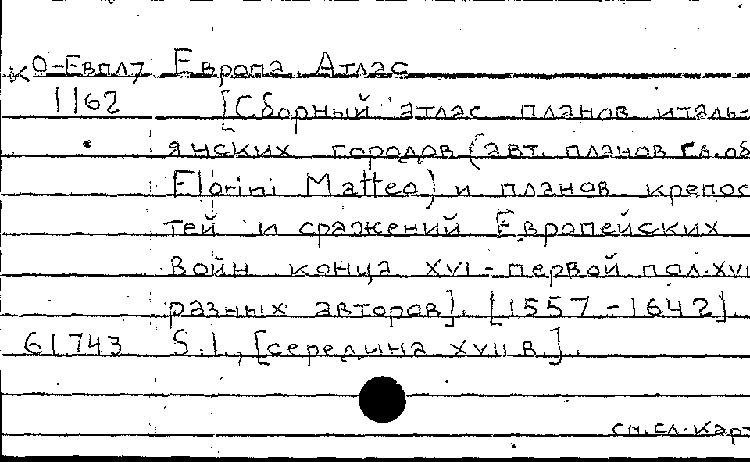 К О-Евпл7 Европа. Атлас
1162 [Сборный атлас планов италь-
янских городов (авт. планов гл. об
Florini Matteo) и планов крепос
тей и сражений Европейских
войн конца XVI - первой пол. XVII
разных авторов]. [1557-1642].
61743 S.l., [середина XVII в.].
см. сл. карт